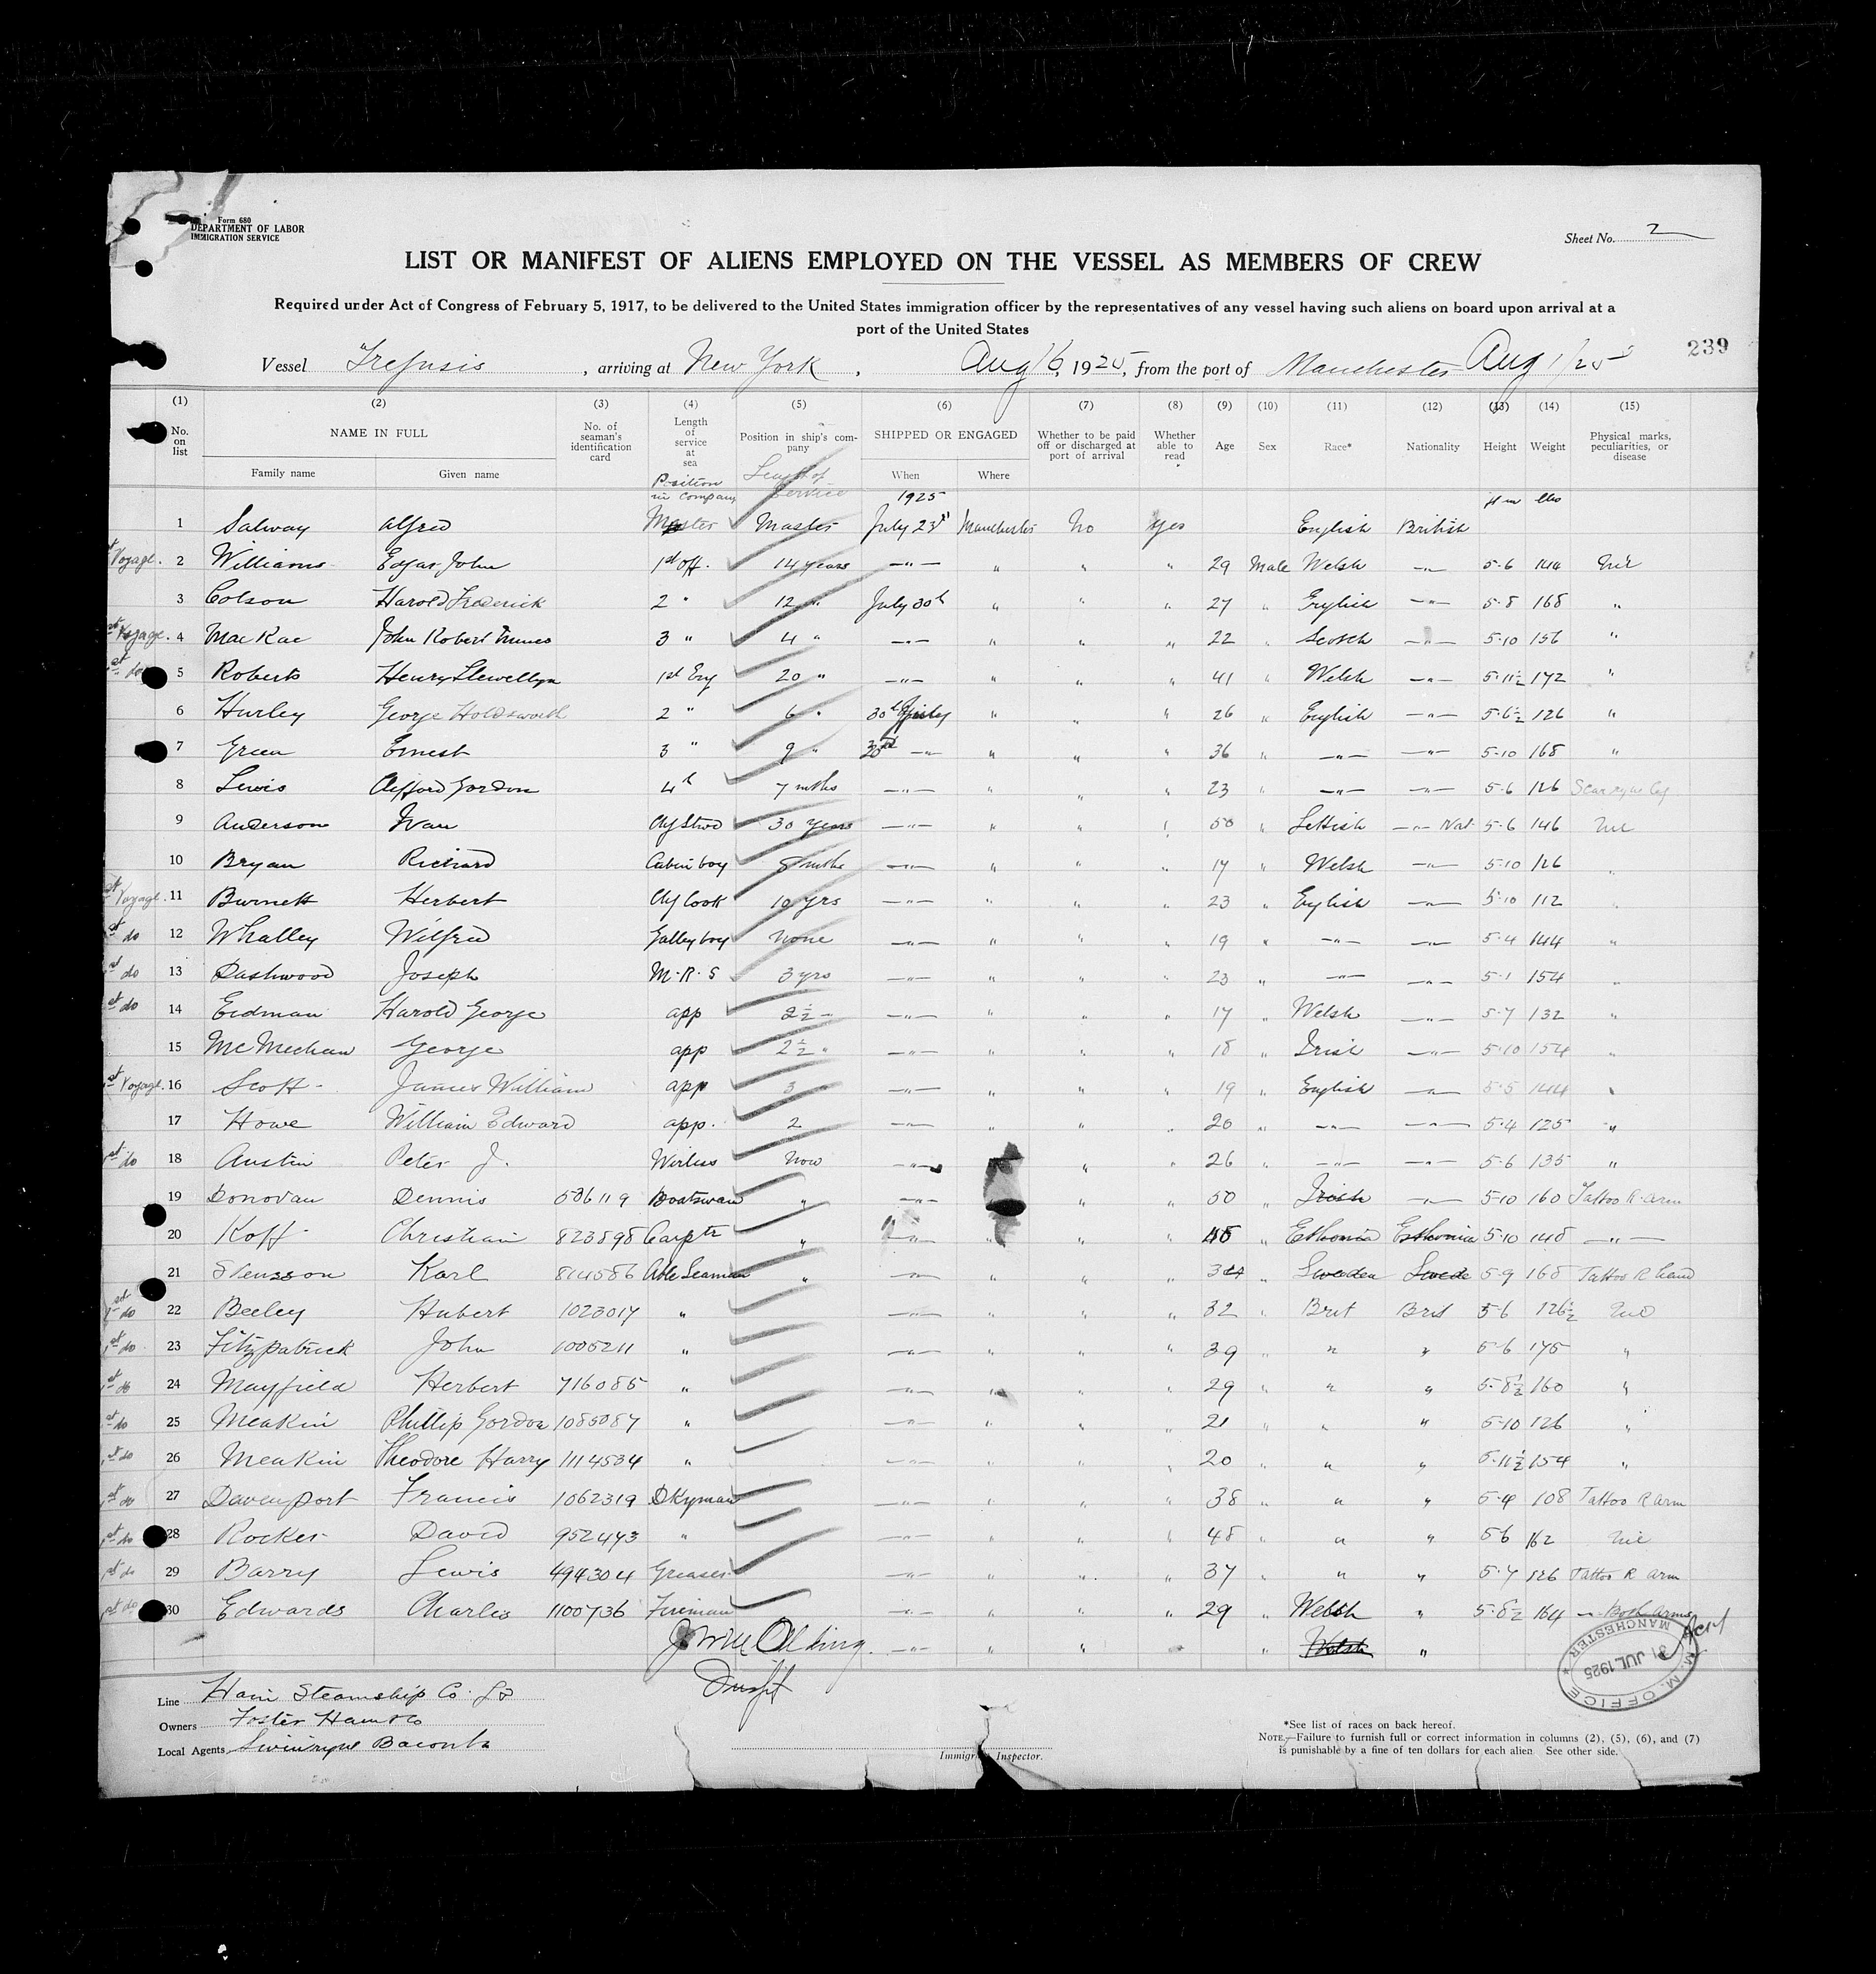 Form 680
DEPARTMENT OF LABOR
IMMIGRATION SERVICE
Sheet No. 2
LIST OR MANIFEST OF ALIENS EMPLOYED ON THE VESSEL AS MEMBERS OF CREW
Required under Act of Congress of February 5, 1917, to be delivered to the United States immigration officer by the representatives of any vessel having such aliens on board upon arrival at a
port of the United States
239
Vessel Trefusis, arriving at New York, Aug 16, 1925, from the port of Manchester Aug 1/25
(1) (2) (3) (4) (5) (6) (7) (8) (9) (10) (11) (12) (13) (14) (15)
No. on list NAME IN FULL No. of seaman's identification card Length of service at sea Position in ship's company SHIPPED OR ENGAGED Whether to be paid off or discharged at port of arrival Whether able to read Age Sex Race* Nationality Height Weight Physical marks, peculiarities, or disease
Family name Given name Position in company Length of Service When Where
1925 lbs
1 Salway Alfred Master Master July 23 Manchester No Yes English British
Voyage. 2 Williams Edgar John 1st off. 14 years —"— " " " 29 Male Welsh —"— 5-6 144 Nil
3 Colson Harold Frederick 2 " 12 " July 30th " " " 27 " English —"— 5-8 168 "
st Voyage. 4 MacRae John Robert Innes 3 " 4 " —"— " " " 22 " Scotch —"— 5-10 156 "
st do 5 Roberts Henry Llewellyn 1st Eng 20 " —"— " " " 41 " Welsh —"— 5-11½ 172 "
6 Hurley George Holdsworth 2 " 6 " 30th " " " 26 " English —"— 5-6½ 126 "
7 Green Ernest 3 " 9 " —"— " " " 36 " —"— —"— 5-10 168 "
8 Lewis Clifford Gordon 4th 7 mths —"— " " " 23 " —"— —"— 5-6 126
9 Anderson Ivan Chf Stwd 30 years —"— " " " 50 " Lettish —"— Nat 5-6 146 Nil
10 Bryan Richard Cabin boy 8 mths —"— " " " 17 " Welsh —"— 5-10 126 "
st Voyage. 11 Burnett Herbert Chf Cook 10 yrs —"— " " " 23 " English —"— 5-10 112 "
st do 12 Whalley Wilfred Galley boy None —"— " " " 19 " —"— —"— 5-4 144 "
st do 13 Dashwood Joseph M.R.S 3 yrs —"— " " " 23 " —"— —"— 5-1 154 "
st do 14 Eidman Harold George app 2½ - —"— " " " 17 " Welsh —"— 5-7 132 "
15 McMeehan George app 2½ " —"— " " " 18 " Irish —"— 5-10 154 "
st Voyage. 16 Scott James William app 3 —"— " " " 19 " English —"— 5-5 144 "
17 Howe William Edward app. 2 —"— " " " 20 " —"— —"— 5-4 125 "
st do 18 Austin Peter J. Wirless Now —"— " " 26 " —"— —"— 5-6 135 "
19 Donovan Dennis 506119 Boatswain " —"— " " 50 " Irish —"— 5-10 160 Tattoo R. Arm
20 Koff Christian 823898 Carptr " —"— " " " 45 " Esthonia Esthonia 5-10 148 —"—
21 Stensson Karl 814586 Able Seaman " —"— " " " 34 " Sweden Swede 5-9 168 Tattoo R hand
1st do 22 Beeley Hubert 1023017 " —"— " " " 32 " Brit Brit 5-6 126½ Nil
1st do 23 Fitzpatrick John 1005211 " —"— " " " 39 " " " 5-6 175 "
1st do 24 Mayfield Herbert 716085 " —"— " " " 29 " " " 5-8½ 160 "
st do 25 Meakin Phillip Gordon 1085087 " —"— " " " 21 " " " 5-10 126 "
1st do 26 Meakin Theodore Harry 1114534 " —"— " " " 20 " " " 5-11½ 154 "
1st do 27 Davenport Francis 1062319 Dkyman —"— " " " 38 " " " 5-4 108 Tattoo R Arm
1st do 28 Rocker David 952473 " —"— " " " 48 " " " 5 6 162 Nil
1st do 29 Barry Lewis 494304 Greaser —"— " " " 37 " " " 5-7 126 Tattoo R Arm
1st do 30 Edwards Charles 1100736 Fireman —"— " " " 29 " Welsh " 5-8½ 164 — Both Arms
—"— " " " Welsh "
M.M. OFFICE
31 JUL 1925
MANCHESTER
Line Hain Steamship Co. Ld
Owners Foster Hain & Co
Local Agents
Immigrant Inspector.
*See list of races on back hereof.
NOTE.—Failure to furnish full or correct information in columns (2), (5), (6), and (7)
is punishable by a fine of ten dollars for each alien. See other side.